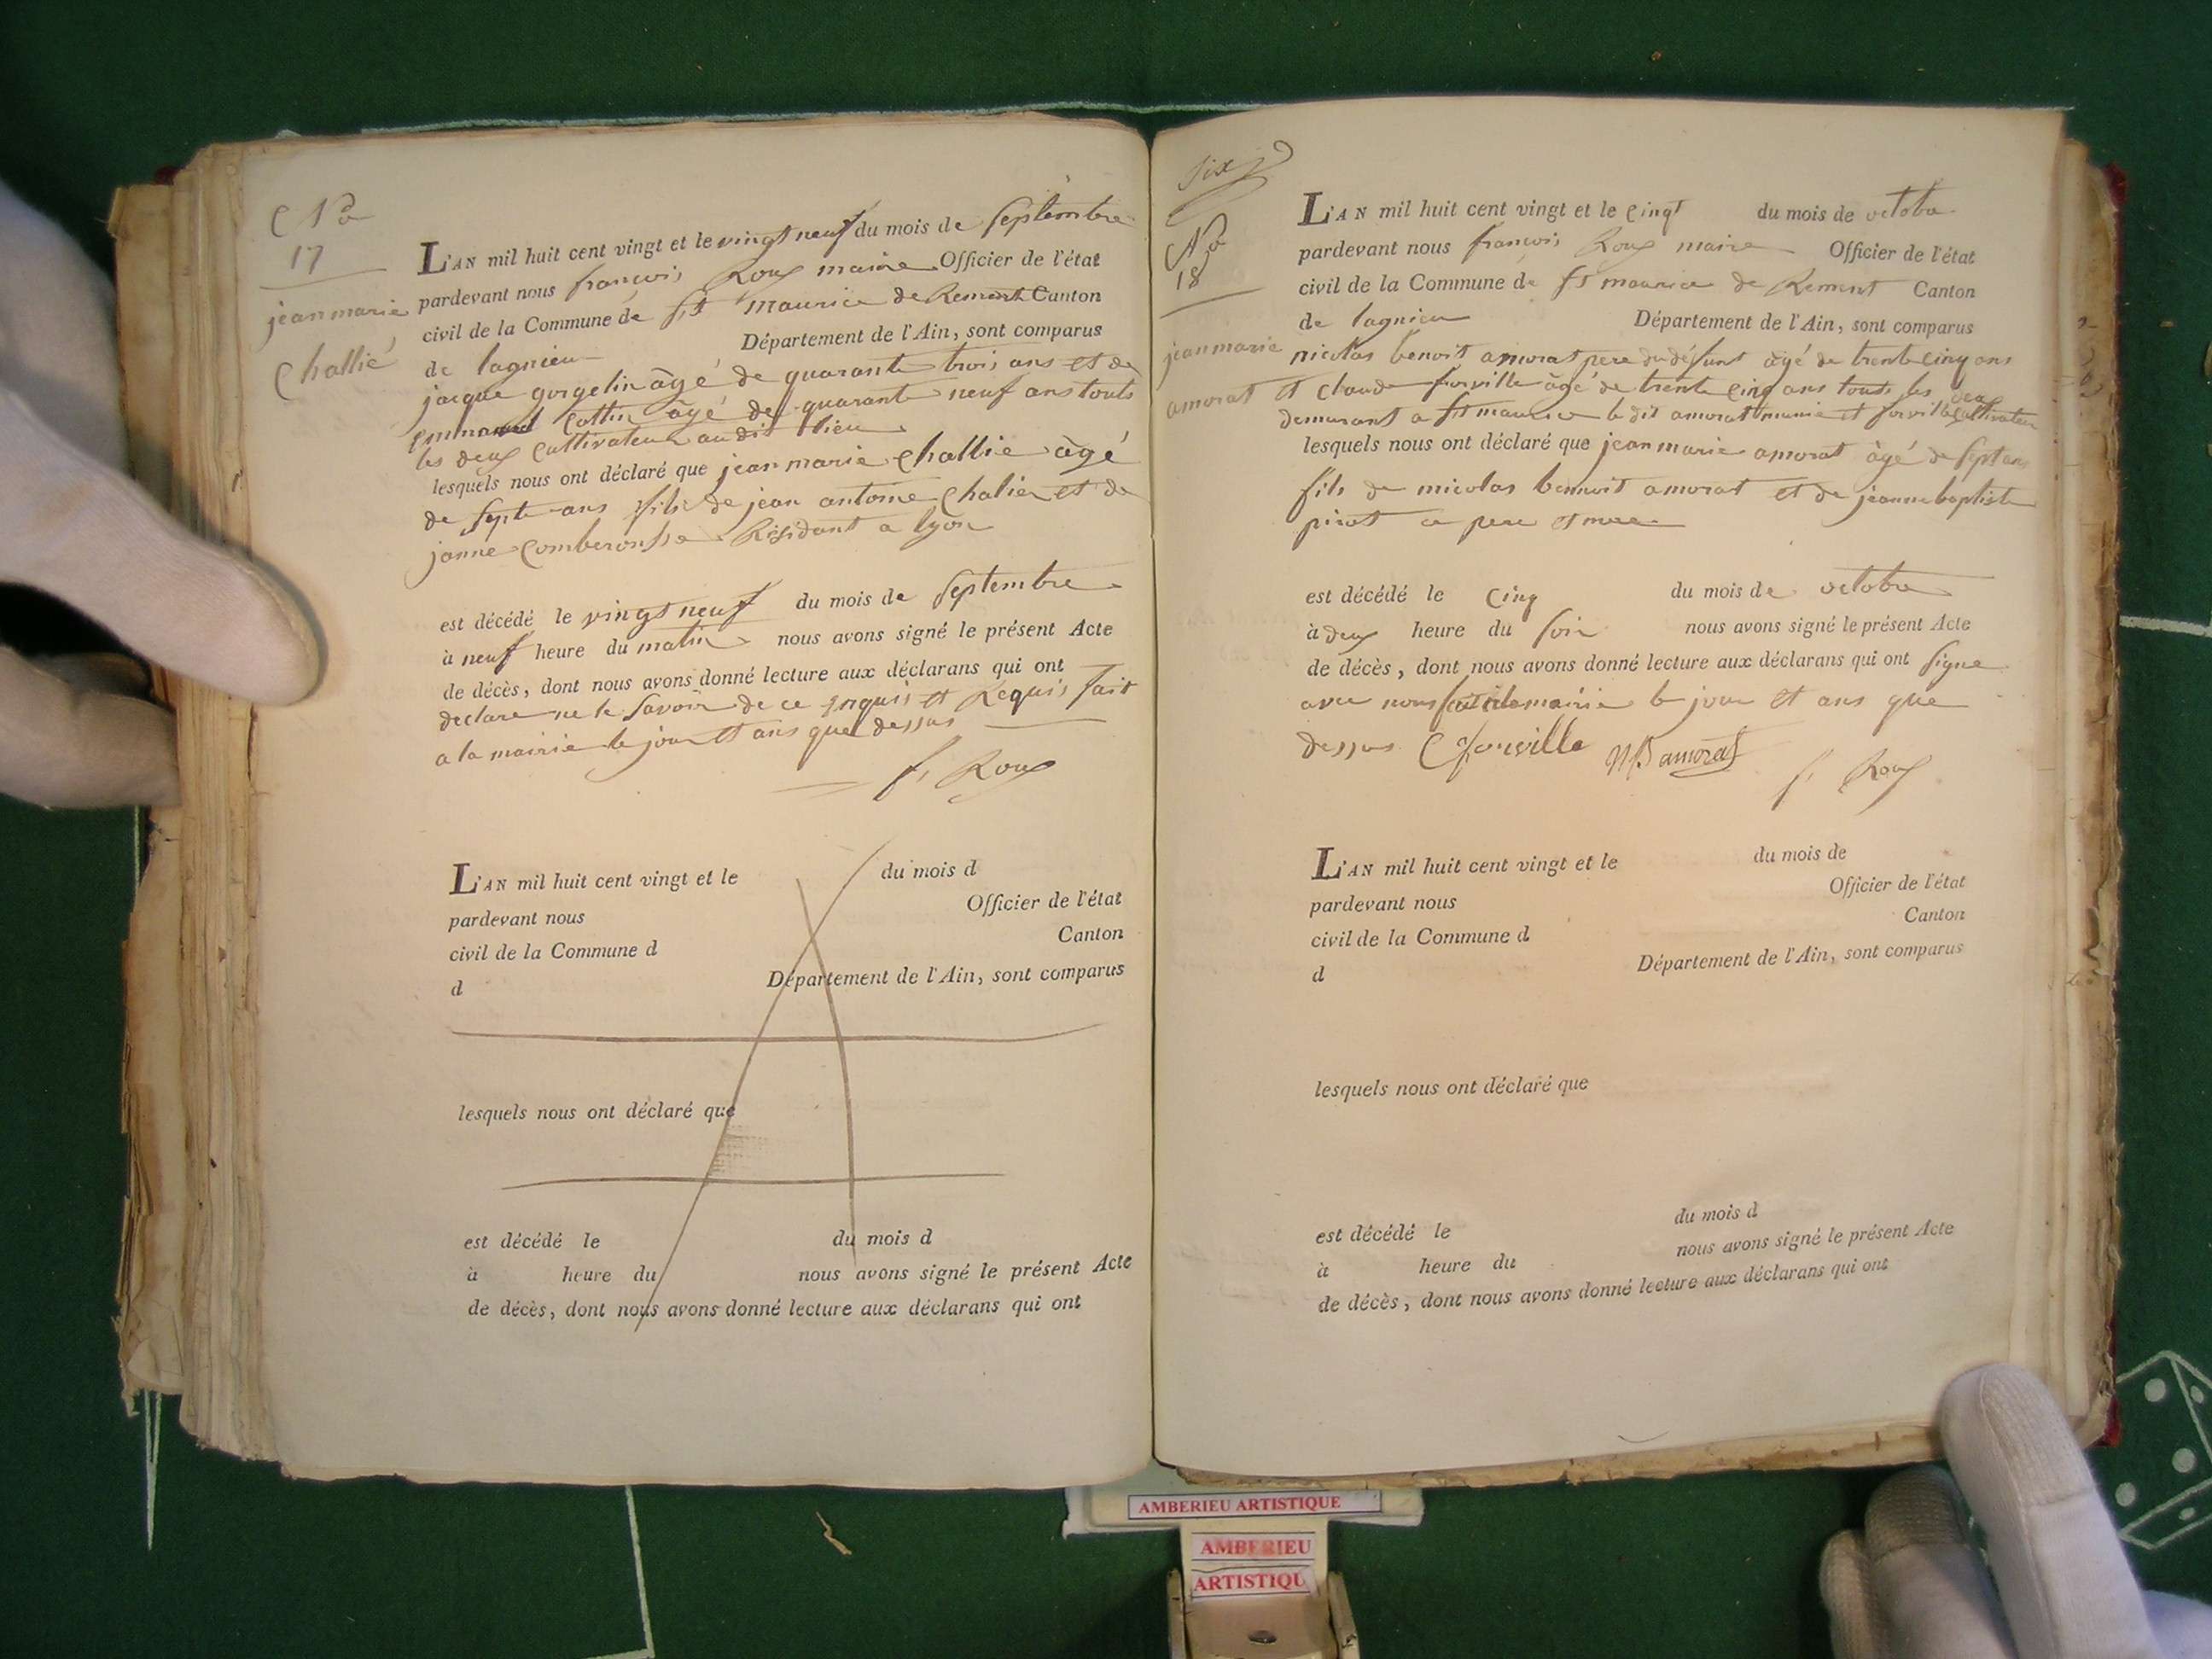 No
17
jean marie
Challié
L'AN mil huit cent vingt et le vingt neuf du mois de Septembre
pardevant nous françois Roux maire Officier de l'état
civil de la Commune de St maurice de Rement Canton
de lagnieu Département de l'Ain, sont comparus
jacque gorgelin âgé de quarante trois ans et de
Cottin âgé de quarante neuf ans touts
les deux Cultivateur au dit lieu
lesquels nous ont déclaré que jean marie Challié âgé
de Sept ans fils de jean antoine Chalier et de
janne Comberousse Résidant a lyon
est décédé le vingt neuf du mois de Septembre
à neuf heure du matin nous avons signé le présent Acte
de décès, dont nous avons donné lecture aux déclarans qui ont
declare ne le Savoir de ce enquis et Requis fait
a la mairie le jour et ans que dessus
f. Roux
L'AN mil huit cent vingt et le du mois d
pardevant nous Officier de l'état
civil de la Commune d Canton
d Département de l'Ain, sont comparus
lesquels nous ont déclaré que
est décédé le du mois d
à heure du nous avons signé le présent Acte
de décès, dont nous avons donné lecture aux déclarans qui ont
Six
No
18
jean marie
amorat
L'AN mil huit cent vingt et le Cinqt du mois de octobre
pardevant nous françois Roux maire Officier de l'état
civil de la Commune de St maurice de Rement Canton
de lagnieu Département de l'Ain, sont comparus
nicolas benoit amorat pere du défunt âgé de trente Cinq ans
et claude forville âgé de trente Cinq ans touts les deux
demurant a St maurice le dit amorat et forville Cultivateur
lesquels nous ont déclaré que jean marie amorat âgé de Sept ans
fils de nicolas bennoit amorat et de jeanne baptiste
pirot ce pere et mere
est décédé le Cinq du mois de octobre
à deux heure du Soir nous avons signé le présent Acte
de décès, dont nous avons donné lecture aux déclarans qui ont Signe
avec nous mairie le jour et ans que
dessus C forville NB amorat
f. Roux
L'AN mil huit cent vingt et le du mois de
pardevant nous Officier de l'état
civil de la Commune d Canton
d Département de l'Ain, sont comparus
lesquels nous ont déclaré que
est décédé le du mois d
à heure du nous avons signé le présent Acte
de décès, dont nous avons donné lecture aux déclarans qui ont
AMBERIEU ARTISTIQUE
AMBERIEU
ARTISTIQU